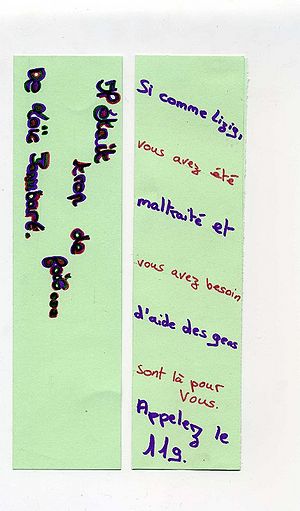 Il était trop de fois...
De Loïc Jombart.
Si comme Lizig,
vous avez été
maltraité et
vous avez besoin
d'aide des gens
sont là pour
Vous.
Appelez le
119.